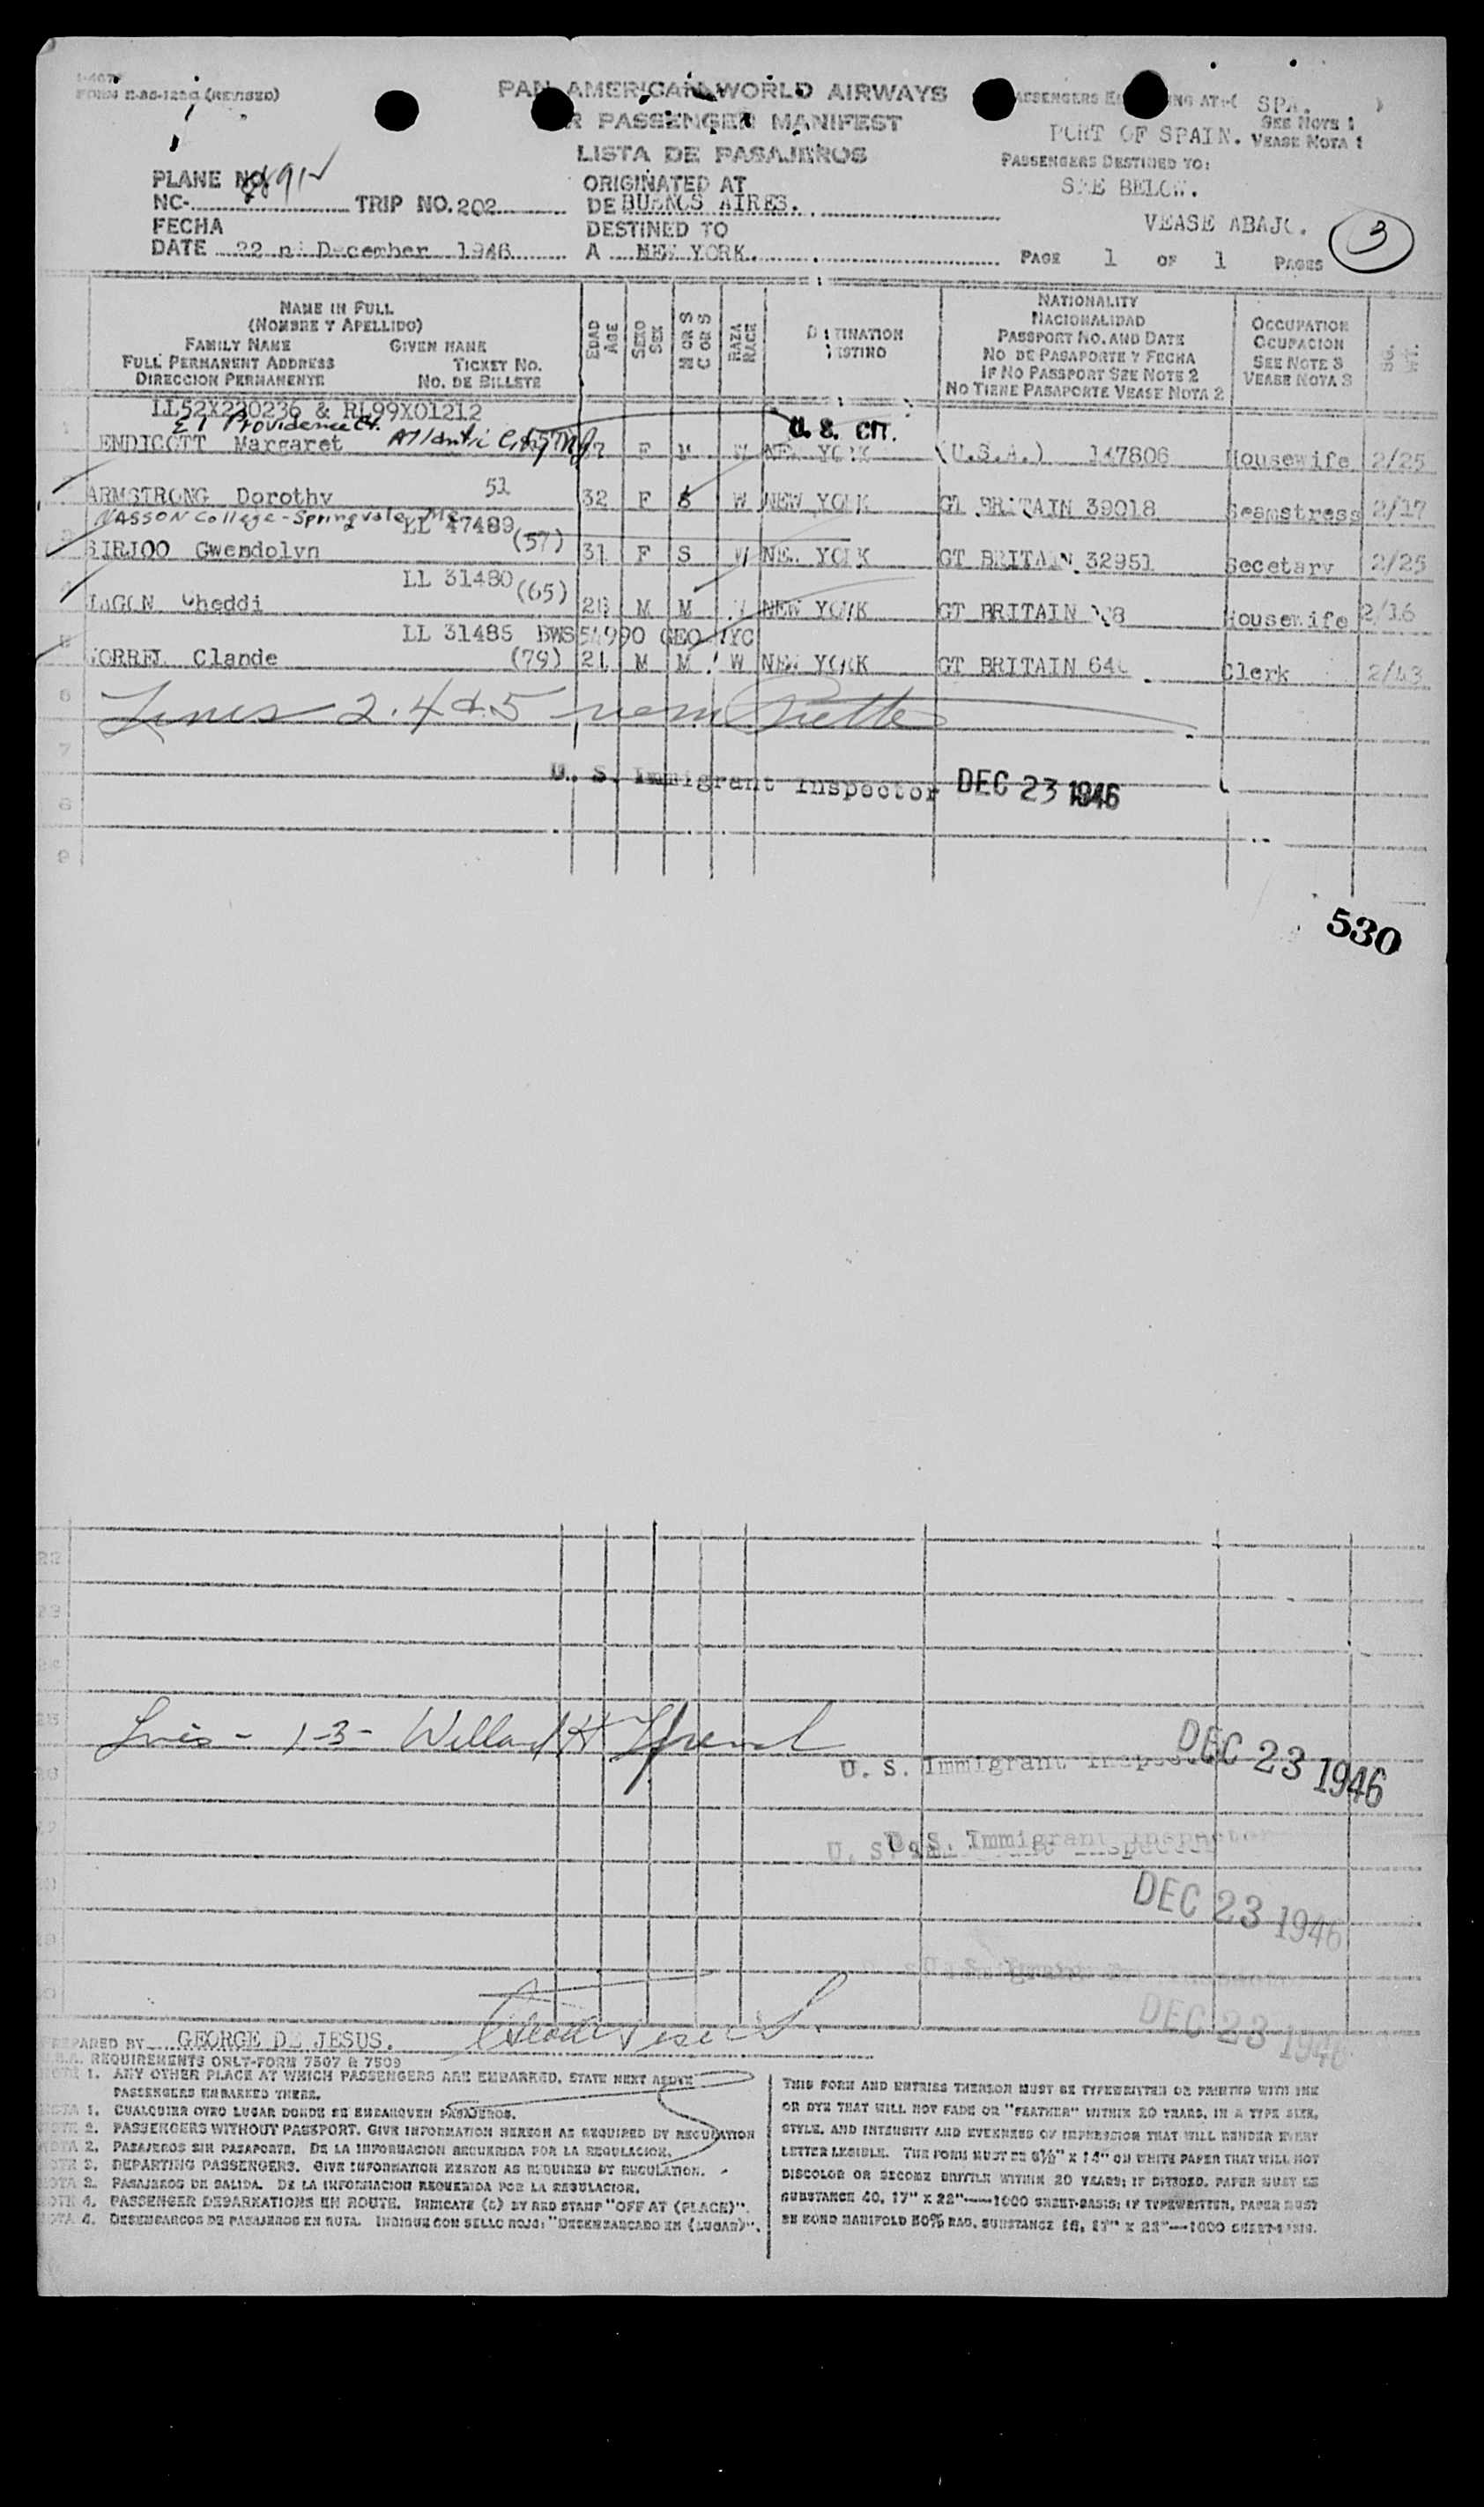 I-407
FORM E-86-123G (REVISED)
PAN AMERICAN WORLD AIRWAYS
R PASSENGER MANIFEST
LISTA DE PASAJEROS
SPA.
SEE NOTE 1
PORT OF SPAIN. VEASE NOTA 1
PASSENGERS DESTINED TO:
SEE BELOW.
VEASE ABAJO.
3
PAGE 1 OF 1 PAGES
PLANE NO.
NC- TRIP NO. 202
FECHA
DATE 22 December 1946
ORIGINATED AT
DE BUENOS AIRES.
DESTINED TO
A NEW YORK.
NAME IN FULL
(NOMBRE Y APELLIDO)
FAMILY NAME GIVEN NAME
FULL PERMANENT ADDRESS TICKET NO.
DIRECCION PERMANENTE NO. DE BILLETE
EDAD
AGE
SEXO
SEX
M OR S
C OR S
RAZA
RACE
DESTINATION
DESTINO
NATIONALITY
NACIONALIDAD
PASSPORT NO. AND DATE
NO DE PASAPORTE Y FECHA
IF NO PASSPORT SEE NOTE 2
NO TIENE PASAPORTE VEASE NOTA 2
OCCUPATION
OCUPACION
SEE NOTE 3
VEASE NOTA 3
LL52X220236 & RL99X01212
Providence
Atlantic City NJ
U. S. CIT.
1 ENDICOTT Margaret F M W NEW YORK (U.S.A.) 147806 Housewife 2/25
51
ARMSTRONG Dorothy 32 F S W NEW YORK GT BRITAIN 39018 Seamstress 2/17
NASSON College - Springvale, Me
LL 47489 (57)
3 SIRJOO Gwendolyn 31 F S W NEW YORK GT BRITAIN 32951 Secetary 2/25
LL 31480 (65)
4 Cheddi 28 M M NEW YORK GT BRITAIN Housewife 2/16
LL 31485 GEO NYC
5 Clande (79) 21 M M W NEW YORK GT BRITAIN Clerk 2/43
6
Lines 2.4 & 5
7
U. S. Immigrant Inspector DEC 23 1946
8
9
530
22
23
24
25
Lines - 1-3 - Willard H
U. S. Immigrant Inspector DEC 23 1946
U. S. Immigrant Inspector
DEC 23 1946
DEC 23 1946
PREPARED BY GEORGE DE JESUS.
REQUIREMENTS ONLY-FORM 7507 & 7509
NOTE 1. ANY OTHER PLACE AT WHICH PASSENGERS ARE EMBARKED, STATE NEXT ABOVE
PASSENGERS EMBARKED THERE.
NOTA 1. CUALQUIER OTRO LUGAR DONDE SE EMBARQUEN PASAJEROS.
NOTE 2. PASSENGERS WITHOUT PASSPORT. GIVE INFORMATION HEREON AS REQUIRED BY REGULATION
NOTA 2. PASAJEROS SIN PASAPORTE. DE LA INFORMACION REQUERIDA POR LA REGULACION.
NOTE 3. DEPARTING PASSENGERS. GIVE INFORMATION HEREON AS REQUIRED BY REGULATION.
NOTA 3. PASAJEROS DE SALIDA. DE LA INFORMACION REQUERIDA POR LA REGULACION.
NOTE 4. PASSENGER DEBARKATIONS EN ROUTE. INDICATE (S) BY RED STAMP "OFF AT (PLACE)".
NOTA 4. DESEMBARCOS DE PASAJEROS EN RUTA. INDIQUE CON SELLO ROJO: "DESEMBARCADO EN (LUGAR)".
THIS FORM AND ENTRIES THEREON MUST BE TYPEWRITTEN OR PRINTED WITH INK
OR DYE THAT WILL NOT FADE OR "FEATHER" WITHIN 20 YEARS, IN A TYPE SIZE,
STYLE, AND INTENSITY AND EVENNESS OF IMPRESSION THAT WILL RENDER EVERY
LETTER LEGIBLE. THE FORM MUST BE 8½" X 14" ON WHITE PAPER THAT WILL NOT
DISCOLOR OR BECOME BRITTLE WITHIN 20 YEARS; IF DITTOED, PAPER MUST BE
SUBSTANCE 40, 17" X 22"—1000 SHEET-BASIS; IF TYPEWRITTEN, PAPER MUST
BE BOND MANIFOLD 50% RAG, SUBSTANCE 16, 17" X 22"—1000 SHEET-BASIS.